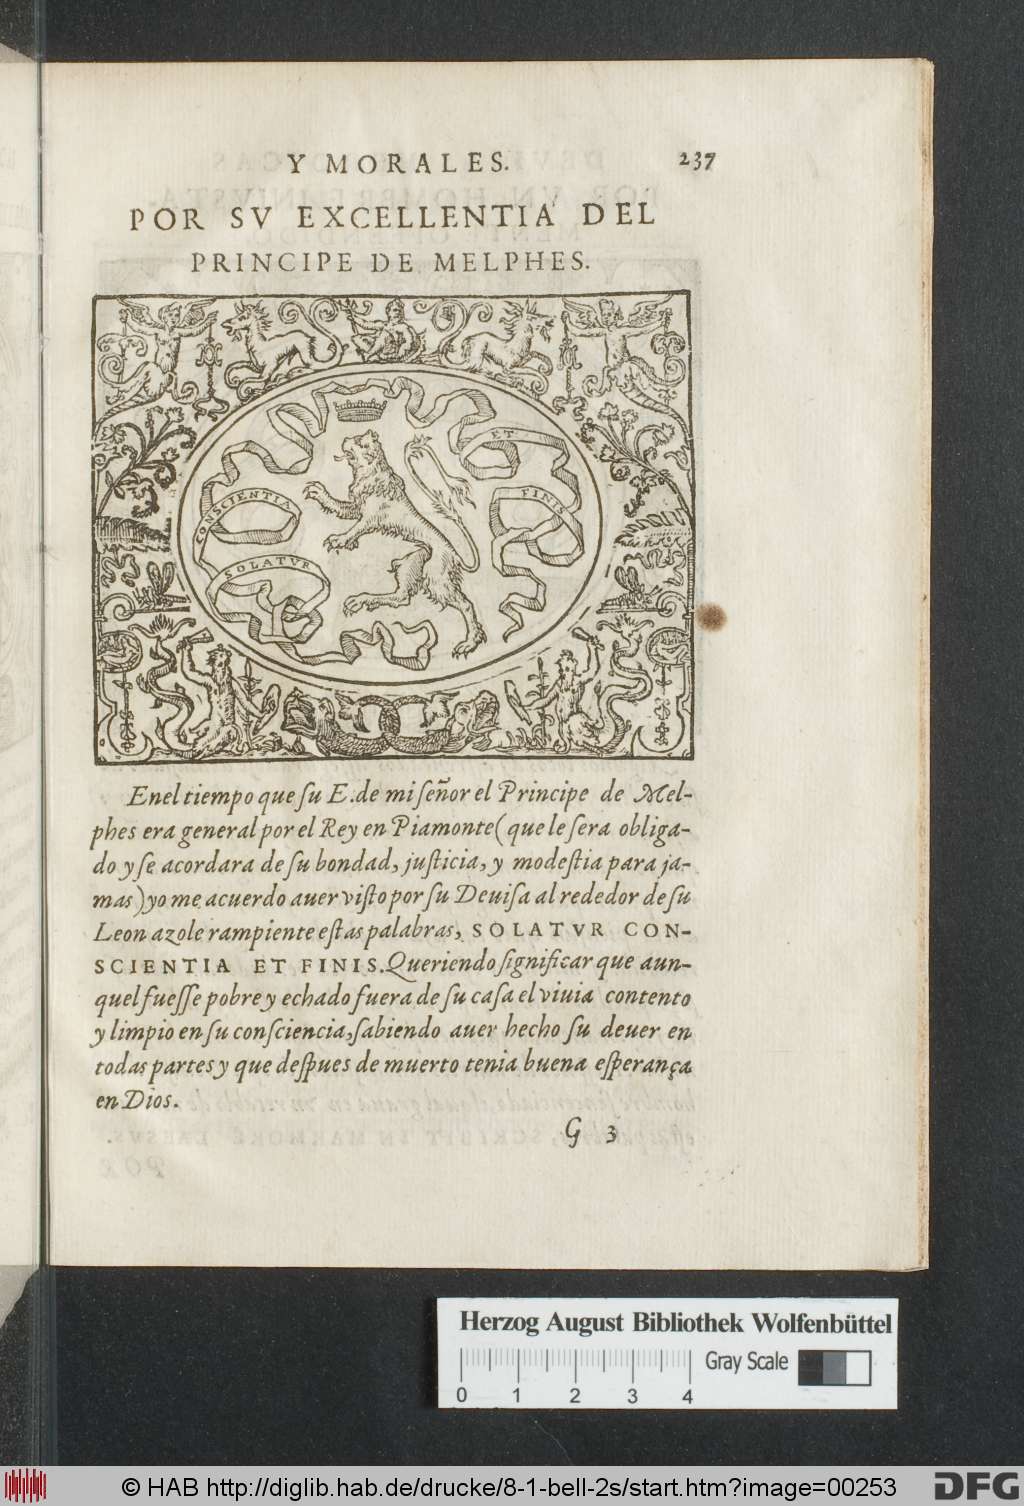 Y MORALES. 237
POR SV EXCELLENTIA DEL
PRINCIPE DE MELPHES.
ET
CONSCIENTIA
FINIS
SOLATVR
Enel tiempo que ſu E. de mi ſeñor el Principe de Mel-
phes era general por el Rey en Piamonte (que le ſera obliga-
do y ſe acordara de ſu bondad, juſticia, y modeſtia para ja-
mas) yo me acuerdo auer viſto por ſu Deuiſa al rededor de ſu
Leon azole rampiente eſtas palabras, SOLATVR CON-
SCIENTIA ET FINIS. Queriendo ſignificar que aun-
quel fueſſe pobre y echado fuera de ſu caſa el viuia contento
y limpio en ſu conſciencia, ſabiendo auer hecho ſu deuer en
todas partes y que deſpues de muerto tenia buena eſperança
en Dios.
G 3
Herzog August Bibliothek Wolfenbüttel
Gray Scale
0 1 2 3 4
© HAB http://diglib.hab.de/drucke/8-1-bell-2s/start.htm?image=00253
DFG